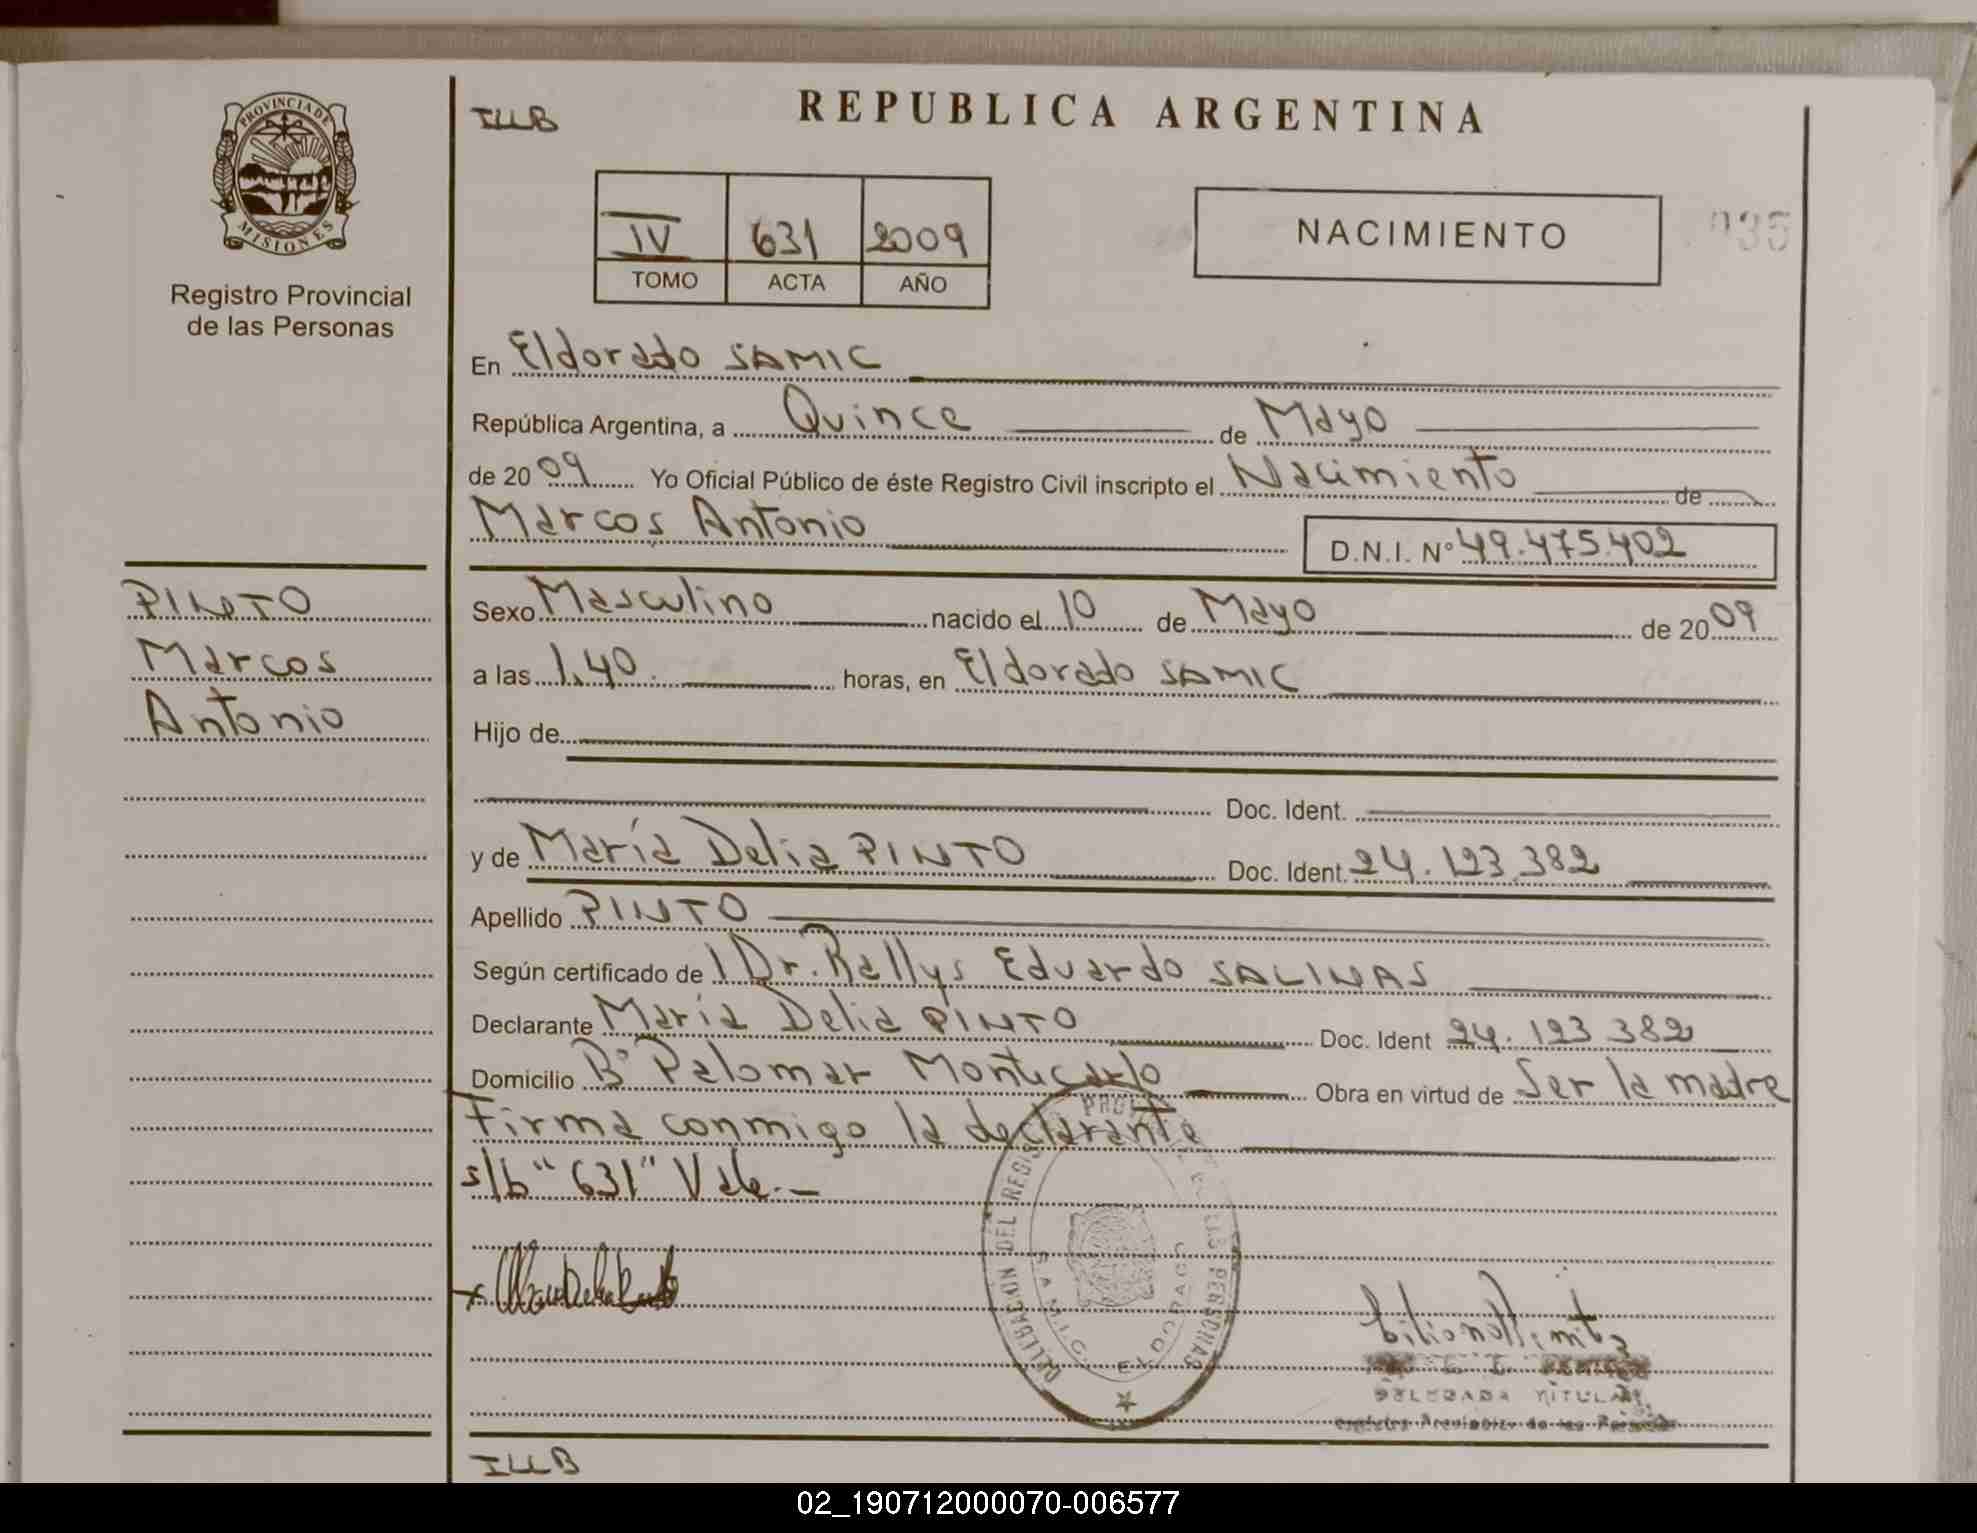 PROVINCIA DE
MISIONES
Registro Provincial
de las Personas
ILLB
REPUBLICA ARGENTINA
IV 631 2009
TOMO ACTA AÑO
NACIMIENTO
035
En Eldorado SAMIC
República Argentina, a Quince de Mayo
de 2009 Yo Oficial Público de éste Registro Civil inscripto el Nacimiento de
Marcos Antonio D.N.I. Nº 49.475.402
PINTO
Marcos
Antonio
Sexo Masculino nacido el 10 de Mayo de 2009
a las 1.40 horas, en Eldorado SAMIC
Hijo de
Doc. Ident.
y de María Delia PINTO Doc. Ident. 24.123.382
Apellido PINTO
Según certificado de l Dr. Rallys Eduardo SALINAS
Declarante María Delia PINTO Doc. Ident 24.123.382
Domicilio Bº Palomar Montecarlo Obra en virtud de Ser la madre
Firma conmigo la declarante
s/b "631" Vale.-
DELEGACION DEL REGISTRO PERSONAS
S.A.M.I.C. ELDORADO
DELEGADA TITULAR
Registro Provincial de las Personas
ILLB
02_190712000070-006577